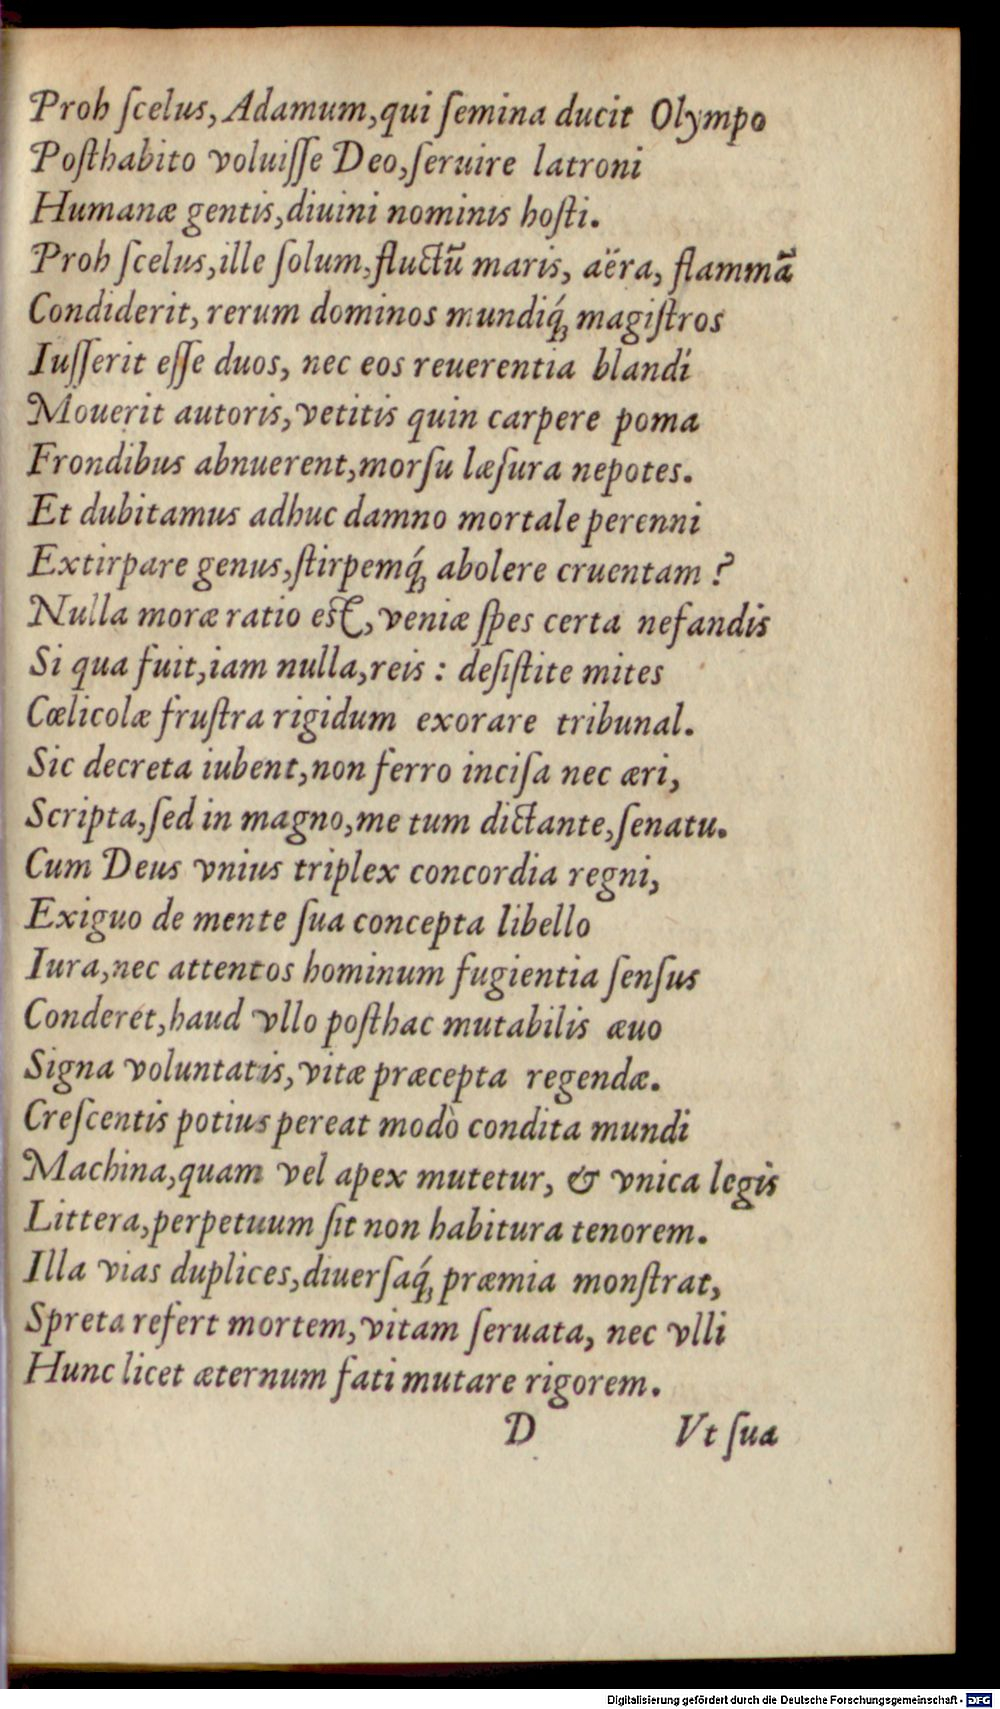 Proh ſcelus, Adamum, qui ſemina ducit Olympo
Poſthabito voluiſſe Deo, ſeruire latroni
Humanæ gentis, diuini nominis hoſti.
Proh ſcelus, ille ſolum, fluctũ maris, aëra, flammã
Condiderit, rerum dominos mundiq́ꝫ magiſtros
Iuſſerit eſſe duos, nec eos reuerentia blandi
Mouerit autoris, vetitis quin carpere poma
Frondibus abnuerent, morſu læſura nepotes.
Et dubitamus adhuc damno mortale perenni
Extirpare genus, ſtirpemq́ꝫ abolere cruentam?
Nulla moræ ratio est, veniæ ſpes certa nefandis
Si qua fuit, iam nulla, reis: deſiſtite mites
Cœlicolæ fruſtra rigidum exorare tribunal.
Sic decreta iubent, non ferro inciſa nec æri,
Scripta, ſed in magno, me tum dictante, ſenatu.
Cum Deus vnius triplex concordia regni,
Exiguo de mente ſua concepta libello
Iura, nec attentos hominum fugientia ſenſus
Conderet, haud vllo poſthac mutabilis æuo
Signa voluntatis, vitæ præcepta regendæ.
Creſcentis potius pereat modò condita mundi
Machina, quam vel apex mutetur, & vnica legis
Littera, perpetuum ſit non habitura tenorem.
Illa vias duplices, diuerſaq́ꝫ præmia monſtrat,
Spreta refert mortem, vitam ſeruata, nec vlli
Hunc licet æternum fati mutare rigorem.
D Vt ſua
Digitalisierung gefördert durch die Deutsche Forschungsgemeinschaft - DFG